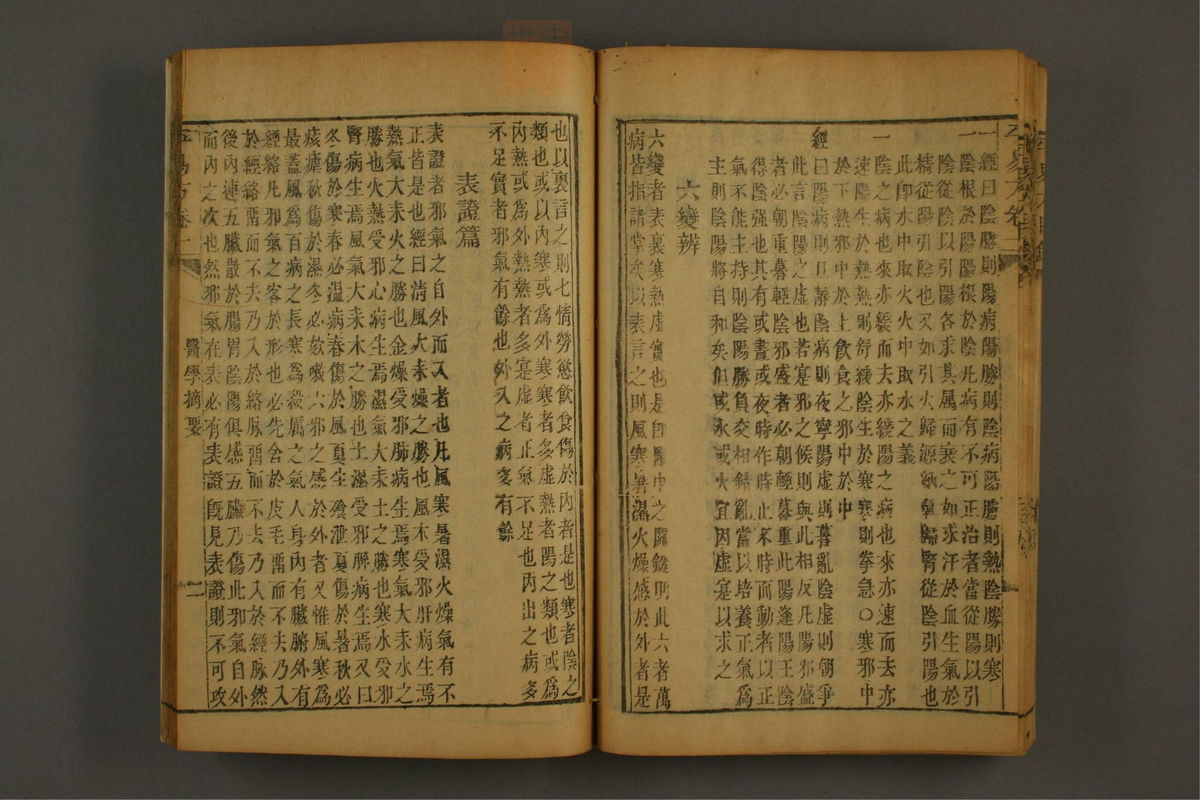 一經曰陰勝則陽病陽勝則陰病陽勝則熱陰勝則寒
一陰根於陽陽根於陰凡病有不可正治者當從陽以引
陰從陰以引陽各求其属而衰之如求汗於血生氣於
精從陽引陰也又如引火歸源納氣歸腎從陰引陽也
此即水中取火火中取水之義
一陰之病也來亦緩而去亦緩陽之病也來亦速而去亦
速陽生於熱熱則舒緩陰生於寒寒則拳急○寒邪中
於下熱邪中於上飲食之邪中於中
經曰陽病則旦靜陰病則夜寧陽虛則暮亂陰虛則朝爭
此言陰陽之虛也若寔邪之候則與此相反凡陽邪盛
者必朝重暮輕陰邪盛者必朝輕暮重此陽逢陽王陰
得陰强也其有或晝或夜時作時止不時而動者以正
氣不能主持則陰陽勝負交相錯亂當以培養正氣爲
主則陰陽將自和矣但或水或火宜因虛寔以求之
六變辨
六變者表裏寒熱虛實也是即醫中之關鍵明此六者萬
病皆指諸掌矣以表言之則風寒暑濕火燥感於外者是
也以裏言之則七情勞慾飲食傷於內者是也寒者陰之
類也或以內寒或爲外寒寒者多虛熱者陽之類也或爲
內熱或爲外熱熱者多寔虛者正氣不足也內出之病多
不足實者邪氣有餘也外入之病多有餘
表證篇
表證者邪氣之自外而入者也凡風寒暑濕火燥氣有不
正皆是也經曰清風大來燥之勝也風木受邪肝病生焉
熱氣大來火之勝也金燥受邪肺病生焉寒氣大來水之
勝也火熱受邪心病生焉濕氣大來土之勝也寒水受邪
腎病生焉風氣大來木之勝也土濕受邪脾病生焉又曰
冬傷於寒春必溫病春傷於風夏生飧泄夏傷於暑秋必
痎瘧秋傷於濕冬必欬嗽六邪之感於外者又惟風寒爲
最蓋風爲百病之長寒爲殺厲之氣人身內有臟腑外有
經絡凡邪氣之客於形也必先舍於皮毛畱而不去乃入
於經絡畱而不去乃入於絡脉畱而不去乃入於經脉然
後內連五臟散於腸胃陰陽俱感五臟乃傷此邪氣自外
而內之次也然邪氣在表必有表證旣見表證則不可攻
卷二
醫學摘要
二